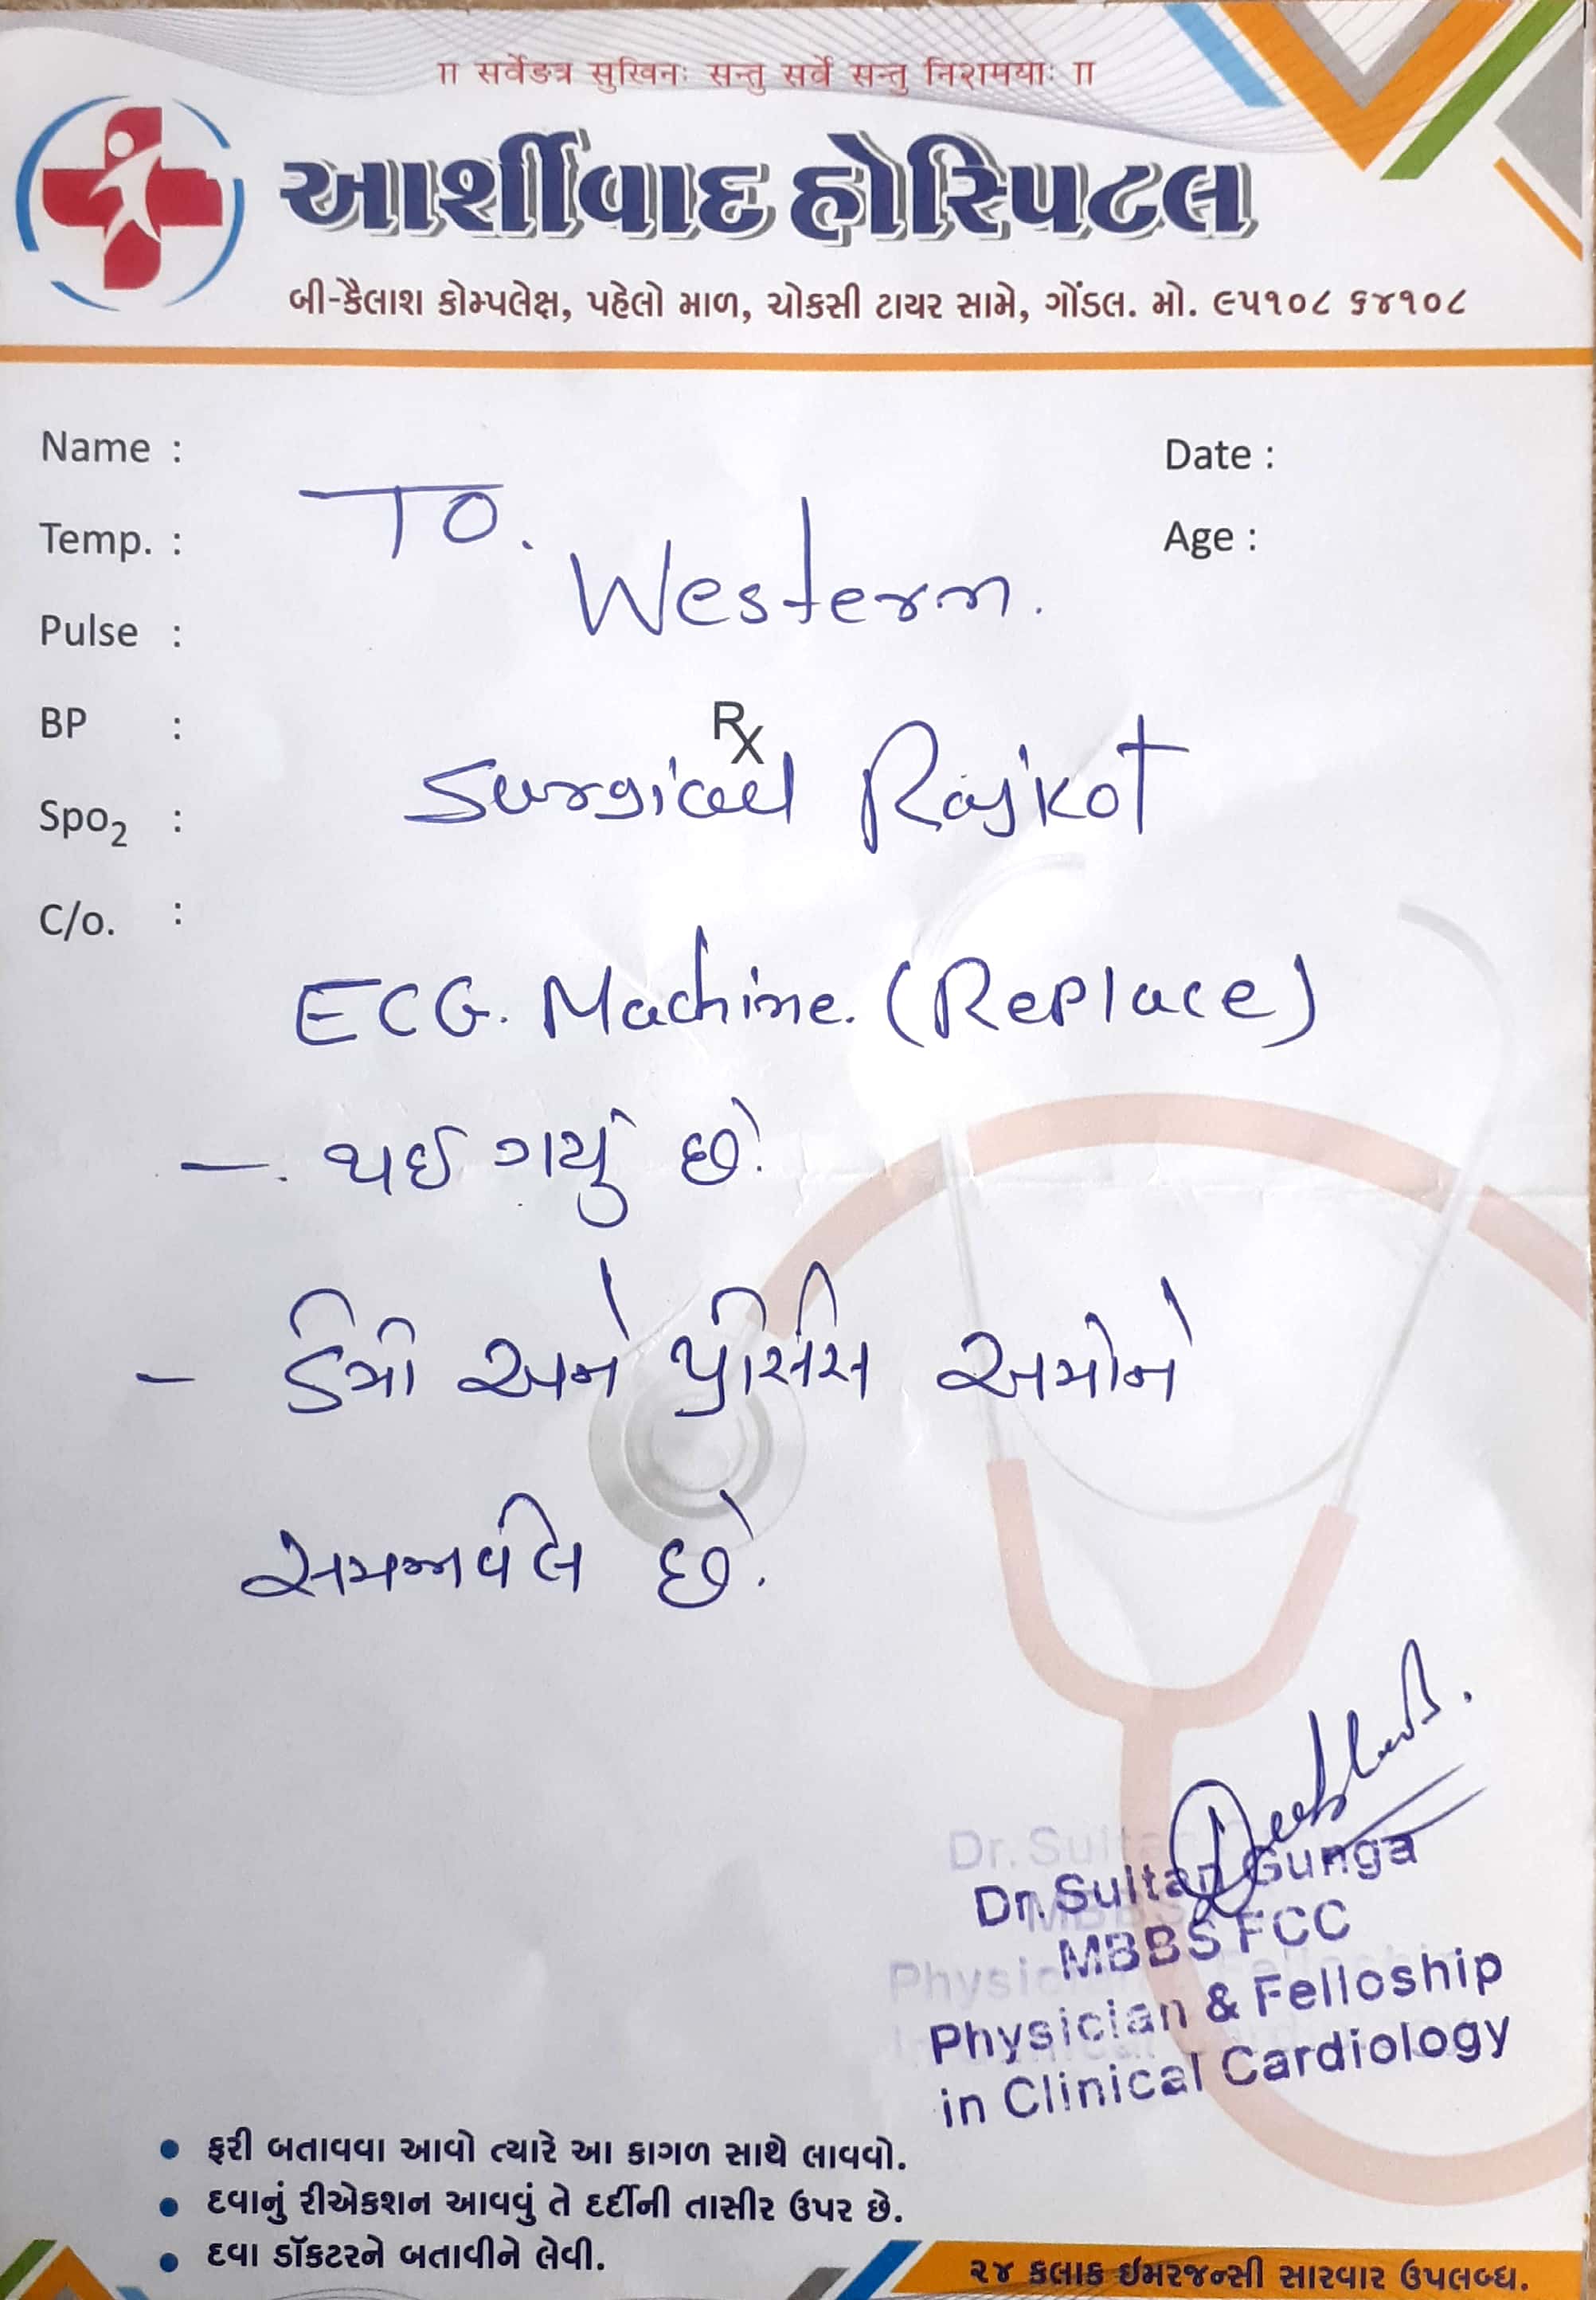 ॥ सर्वेऽत्र सुखिनः सन्तु सर्वे सन्तु निरामयाः ॥
આર્શીવાદ હોસ્પિટલ
બી-કૈલાશ કોમ્પલેક્ષ, પહેલો માળ, ચોકસી ટાયર સામે, ગોંડલ. મો. ૯૫૧૦૮ ૬૪૧૦૮
Name :
Date :
TO.
Temp. :
Age :
Western.
Pulse :
BP :
Rx
Surgical Rajkot
Spo2 :
C/o. :
ECG. Machine. (Replace)
—. થઈ ગયું છે.
- ડેમો અને પ્રોસેસ અમોને
સમજાવેલ છે.
Dr. Sultan Gunga
MBBS FCC
Physician & Felloship
in Clinical Cardiology
• ફરી બતાવવા આવો ત્યારે આ કાગળ સાથે લાવવો.
• દવાનું રીએકશન આવવું તે દર્દીની તાસીર ઉપર છે.
• દવા ડૉકટરને બતાવીને લેવી.
૨૪ કલાક ઈમરજન્સી સારવાર ઉપલબ્ધ.